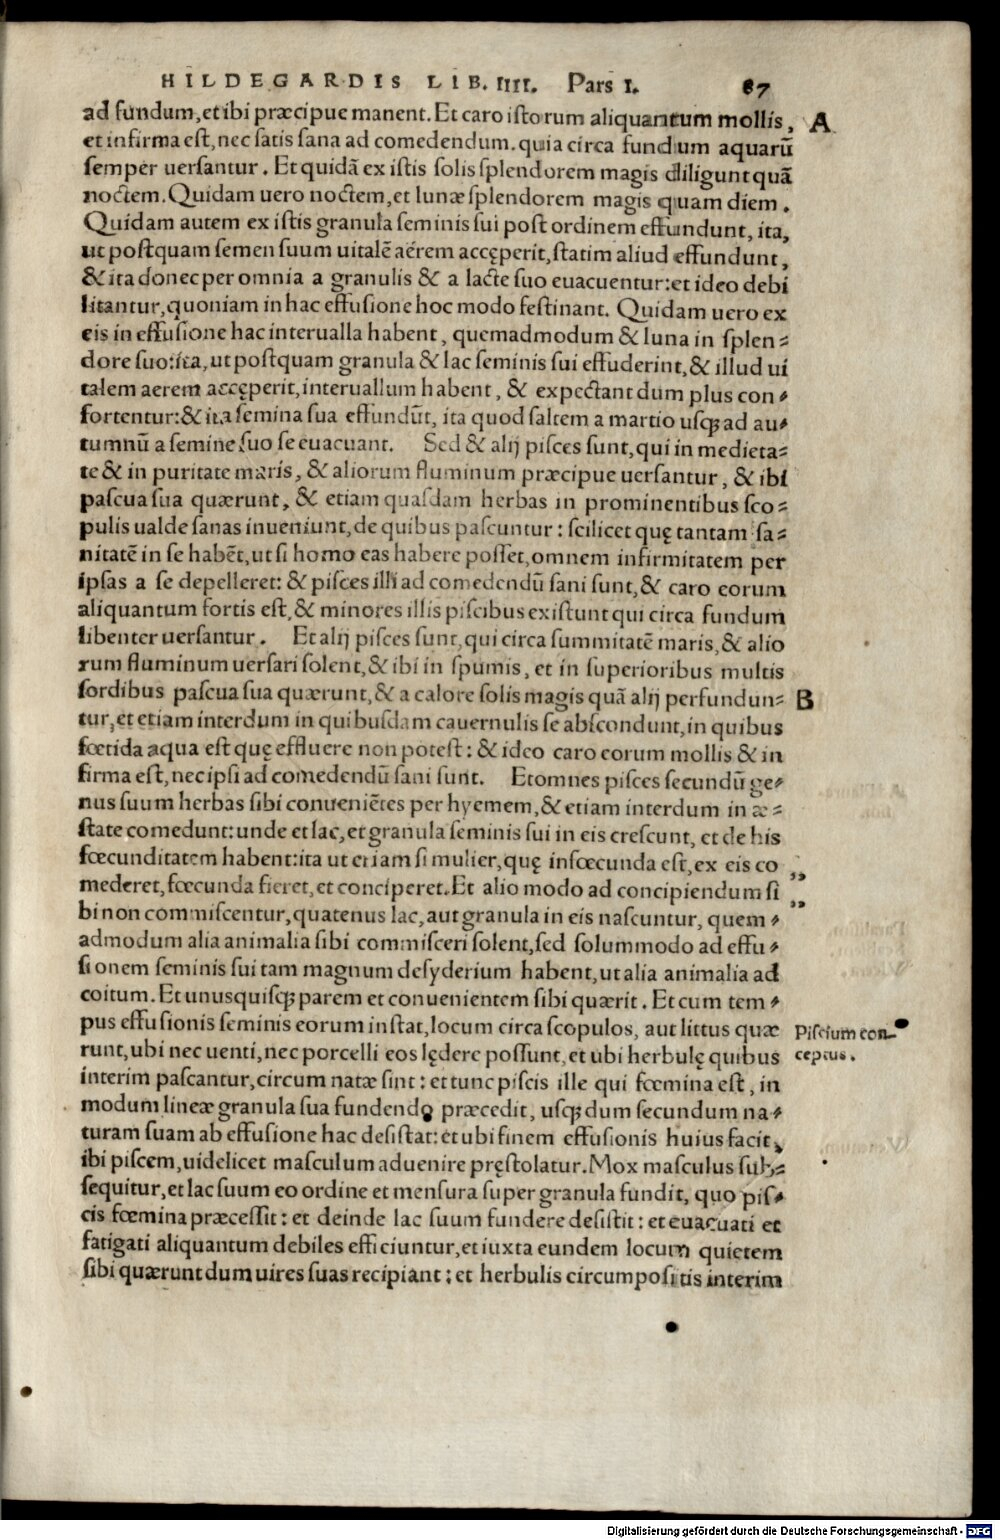 HILDEGARDIS LIB. IIII. Pars I. 87
ad fundum, et ibi præcipue manent. Et caro istorum aliquantum mollis, A
et infirma est, nec satis sana ad comedendum. quia circa fundum aquarū
semper uersantur. Et quidā ex istis solis splendorem magis diligunt quā
noctem. Quidam uero noctem, et lunæ splendorem magis quam diem.
Quidam autem ex istis granula seminis sui post ordinem effundunt, ita,
ut postquam semen suum uitalē aerem accęperit, statim aliud effundunt,
& ita donec per omnia a granulis & a lacte suo euacuentur: et ideo debi
litantur, quoniam in hac effusione hoc modo festinant. Quidam uero ex
eis in effusione hac interualla habent, quemadmodum & luna in splen-
dore suo: ita, ut postquam granula & lac seminis sui effuderint, & illud ui
talem aerem accęperit, interuallum habent, & expectant dum plus con-
fortentur: & ita semina sua effundūt, ita quod saltem a martio usq; ad au-
tumnū a semine suo se euacuant. Sed & alij pisces sunt, qui in medieta-
te & in puritate maris, & aliorum fluminum præcipue uersantur, & ibi
pascua sua quærunt, & etiam quasdam herbas in prominentibus sco-
pulis ualde sanas inueniunt, de quibus pascuntur: scilicet quę tantam sa-
nitatē in se habēt, ut si homo eas habere posset, omnem infirmitatem per
ipsas a se depelleret: & pisces illi ad comedendū sani sunt, & caro eorum
aliquantum fortis est, & minores illis piscibus existunt qui circa fundum
libenter uersantur. Et alij pisces sunt, qui circa summitatē maris, & alio
rum fluminum uersari solent, & ibi in spumis, et in superioribus multis
sordibus pascua sua quærunt, & a calore solis magis quā alij perfundun- B
tur, et etiam interdum in quibusdam cauernulis se abscondunt, in quibus
fœtida aqua est quę effluere non potest: & ideo caro eorum mollis & in
firma est, nec ipsi ad comedendū sani sunt. Et omnes pisces secundū ge-
nus suum herbas sibi conueniētes per hyemem, & etiam interdum in æ-
state comedunt: unde et lac, et granula seminis sui in eis crescunt, et de his
fœcunditatem habent: ita ut etiam si mulier, quę infœcunda est, ex eis co ,,
mederet, fœcunda fieret, et conciperet. Et alio modo ad concipiendum si ,,
bi non commiscentur, quatenus lac, aut granula in eis nascuntur, quem-
admodum alia animalia sibi commisceri solent, sed solummodo ad effu-
sionem seminis sui tam magnum desyderium habent, ut alia animalia ad
coitum. Et unusquisq; parem et conuenientem sibi quærit. Et cum tem-
pus effusionis seminis eorum instat, locum circa scopulos, aut littus quæ Piscium con-
runt, ubi nec uenti, nec porcelli eos lędere possunt, et ubi herbulę quibus ceptus.
interim pascantur, circum natæ sint: et tunc piscis ille qui fœmina est, in
modum lineæ granula sua fundendo præcedit, usq; dum secundum na-
turam suam ab effusione hac desistat: et ubi finem effusionis huius facit,
ibi piscem, uidelicet masculum aduenire pręstolatur. Mox masculus sub-
sequitur, et lac suum eo ordine et mensura super granula fundit, quo pis-
cis fœmina præcessit: et deinde lac suum fundere desistit: et euacuati et
fatigati aliquantum debiles efficiuntur, et iuxta eundem locum quietem
sibi quærunt dum uires suas recipiant: et herbulis circumpositis interim
Digitalisierung gefördert durch die Deutsche Forschungsgemeinschaft - DFG